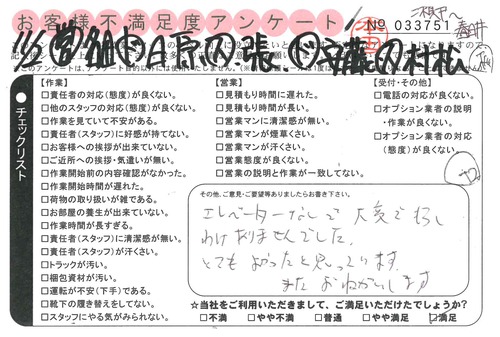 お客様不満足度アンケート
No 033751
【作業】
□責任者の対応(態度)が良くない。
□他のスタッフの対応(態度)が良くない。
□作業を見ていて不安がある。
□責任者(スタッフ)に好感が持てない。
□お客様への挨拶が出来ていない。
□ご近所への挨拶・気遣いが無い。
□作業開始前の内容確認がなかった。
□作業開始時間が遅れた。
□荷物の取り扱いが雑である。
□お部屋の養生が出来ていない。
□作業時間が長すぎる。
□責任者(スタッフ)に清潔感が無い。
□責任者(スタッフ)が汗くさい。
□トラックが汚い。
□梱包資材が汚い。
□運転が不安(下手)である。
□靴下の履き替えをしてない。
□スタッフにやる気がみられない。
【営業】
□見積もり時間に遅れた。
□見積もり時間が長い。
□営業マンに清潔感が無い。
□営業マンが煙草くさい。
□営業マンが汗くさい。
□営業態度が良くない。
□営業の説明と作業が一致してない。
【受付・その他】
□電話の対応が良くない。
□オプション業者の説明
・作業が良くない。
□オプション業者の対応
(態度)が良くない。
チェックリスト
その他、ご意見・ご要望等ありましたらお書き下さい。
エレベーターなしで大変で申し
わけありませんでした。
とてもよかったと思っています。
またおねがいします
☆当社をご利用いただきまして、ご満足いただけたでしょうか?
□不満 □やや不満 □普通 □やや満足 □満足